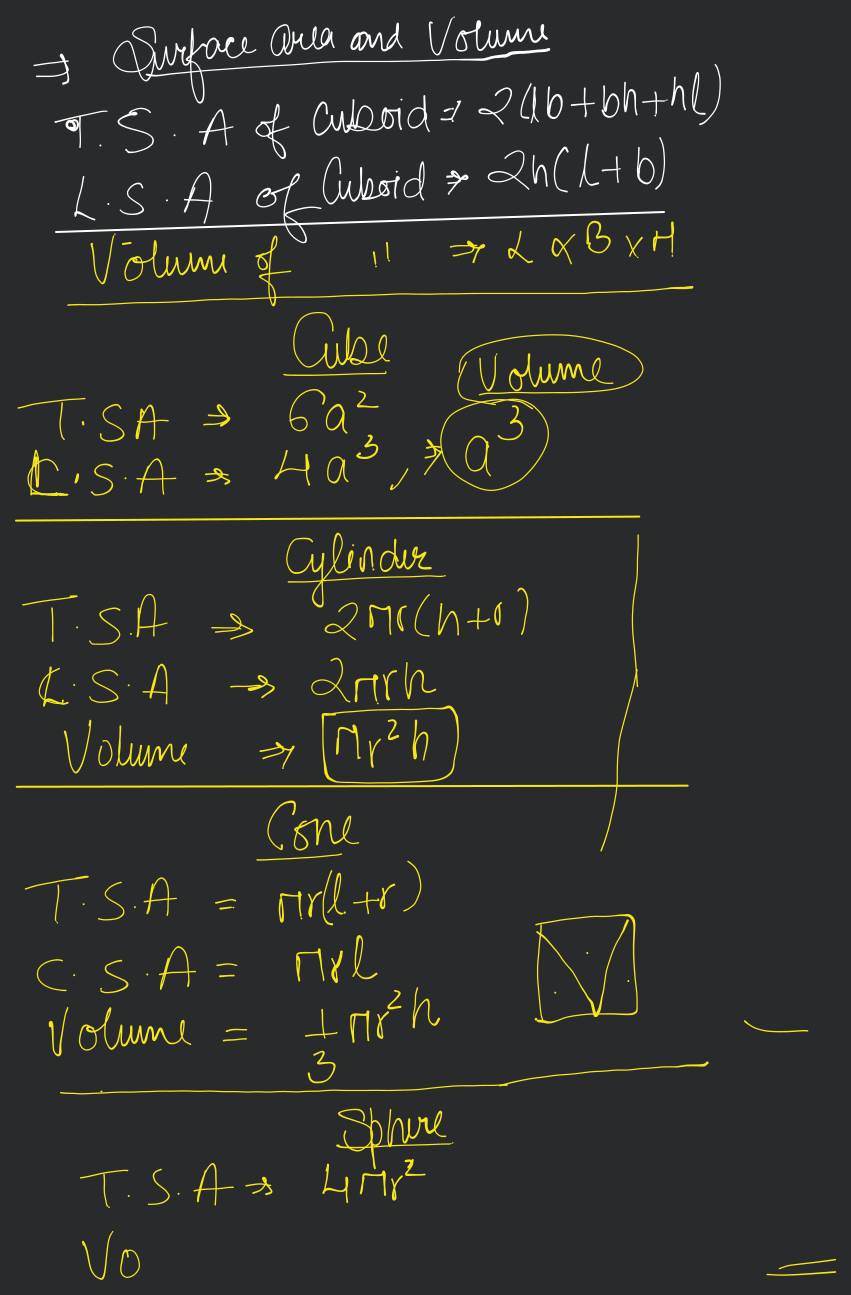 ⇒ Surface area and Volume
T.S.A of cuboid ⇒ 2(lb+bh+hl)
L.S.A of Cuboid ⇒ 2h(l+b)
Volume of " ⇒ L×B×H
Cube
Volume
T.SA ⇒ 6a²
L.S.A ⇒ 4a³, ⇒ a³
Cylinder
T.S.A ⇒ 2πr(h+r)
C.S.A → 2πrh
Volume ⇒ πr²h
Cone
T.S.A = πr(l+r)
C.S.A = πrl
Volume = 1/3 πr²h
Sphere
T.S.A → 4πr²
Vo